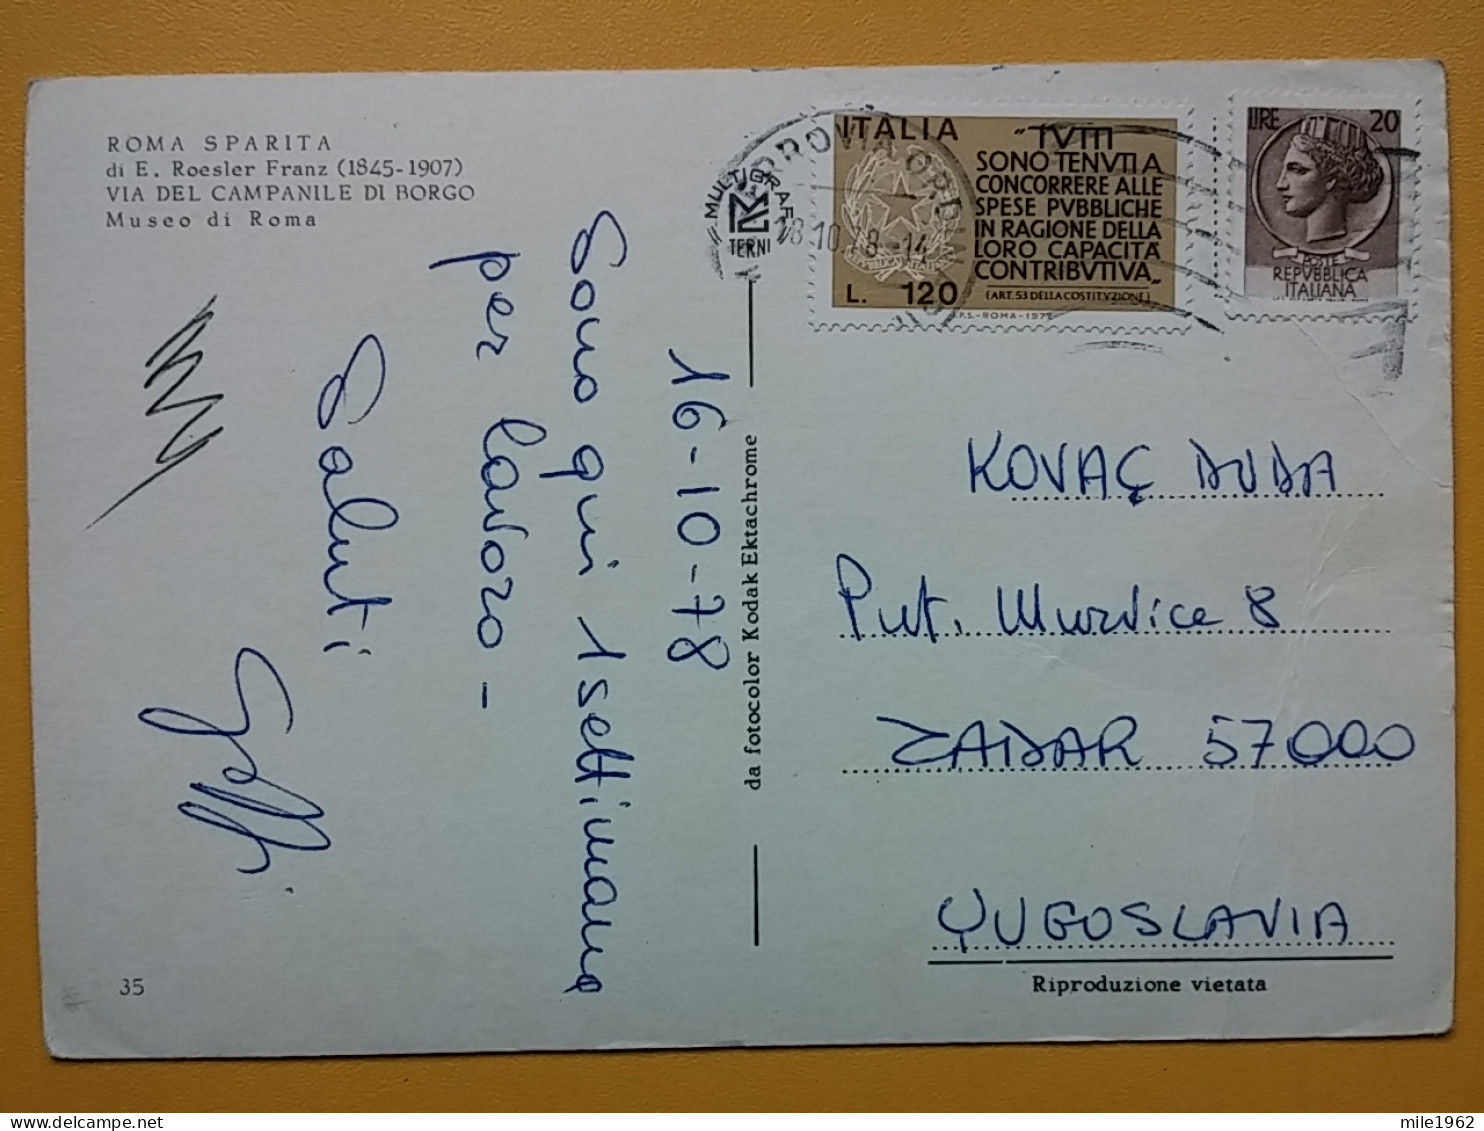 ROMA SPARITA
di E. Roesler Franz (1845-1907)
VIA DEL CAMPANILE DI BORGO
Museo di Roma
16-10-78
Sono qui 1 settimana
per lavoro -
Saluti
35
MULTIGRAF
TERNI
da fotocolor Kodak Ektachrome
ITALIA
"TVTTI
SONO TENVTI A
CONCORRERE ALLE
SPESE PVBBLICHE
IN RAGIONE DELLA
LORO CAPACITÀ
CONTRIBVTIVA"
(ART. 53 DELLA COSTITVZIONE)
L. 120
I.P.S.-ROMA-1977
18.10.78-14
LIRE 20
POSTE
REPVBBLICA
ITALIANA
KOVAÇ DUDA
Put. Murvice 8
ZADAR 57000
YUGOSLAVIA
Riproduzione vietata
mile1962